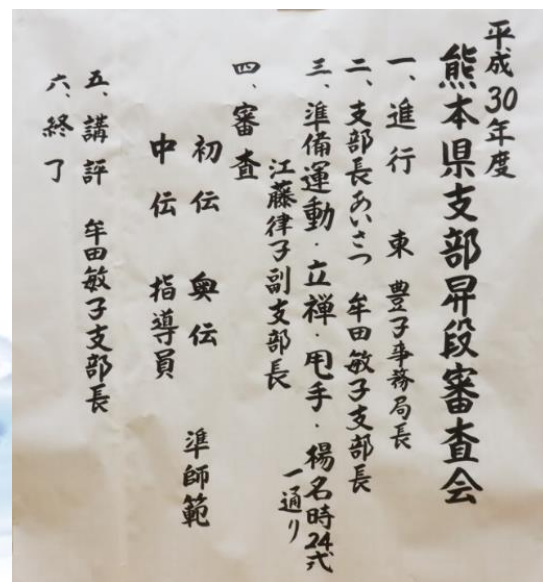 平成30年度
熊本県支部昇段審査会
一、進行 東 豊子事務局長
二、支部長あいさつ 牟田敏子支部長
三、準備運動・立禅・甩手・楊名時24式
一通り
江藤律子副支部長
四、審査
初伝 奥伝 準師範
中伝 指導員
五、講評 牟田敏子支部長
六、終了